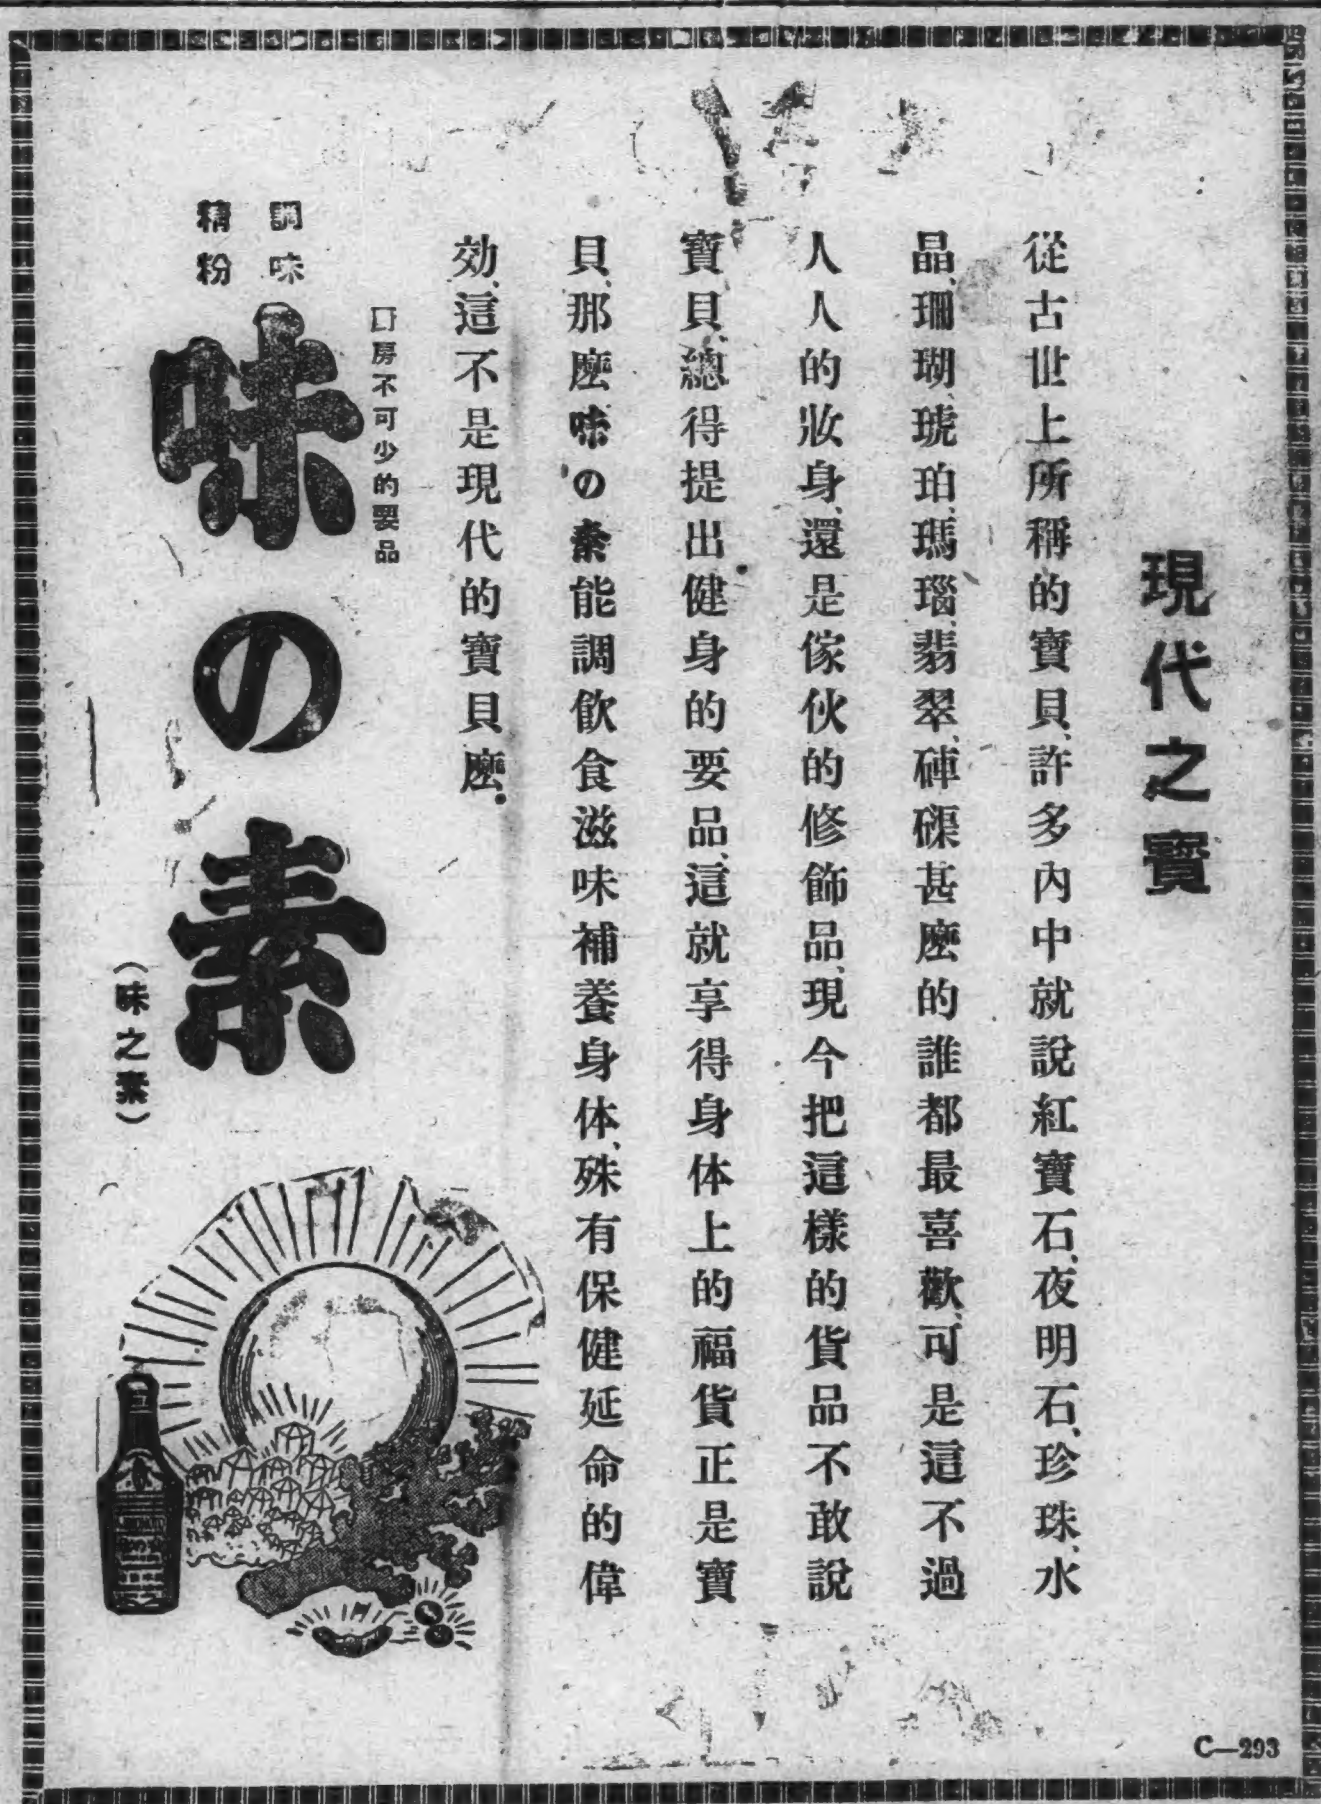 現代之寶
從古世上所稱的寶貝、許多內中就說紅寶石、夜明石、珍珠、水
晶、珊瑚、琥珀、瑪瑙、翡翠、硨磲甚麽的誰都最喜歡、可是這不過
人人的妝身、還是傢伙的修飾品、現今把這樣的貨品不敢說
寶貝、總得提出健身的要品、這就享得身体上的福貨正是寶
貝、那麽味の素能調飲食滋味補養身体、殊有保健延命的偉
効、這不是現代的寶貝麽。
房不可少的要品
調味
精粉
味の素
（味之素）
C—293